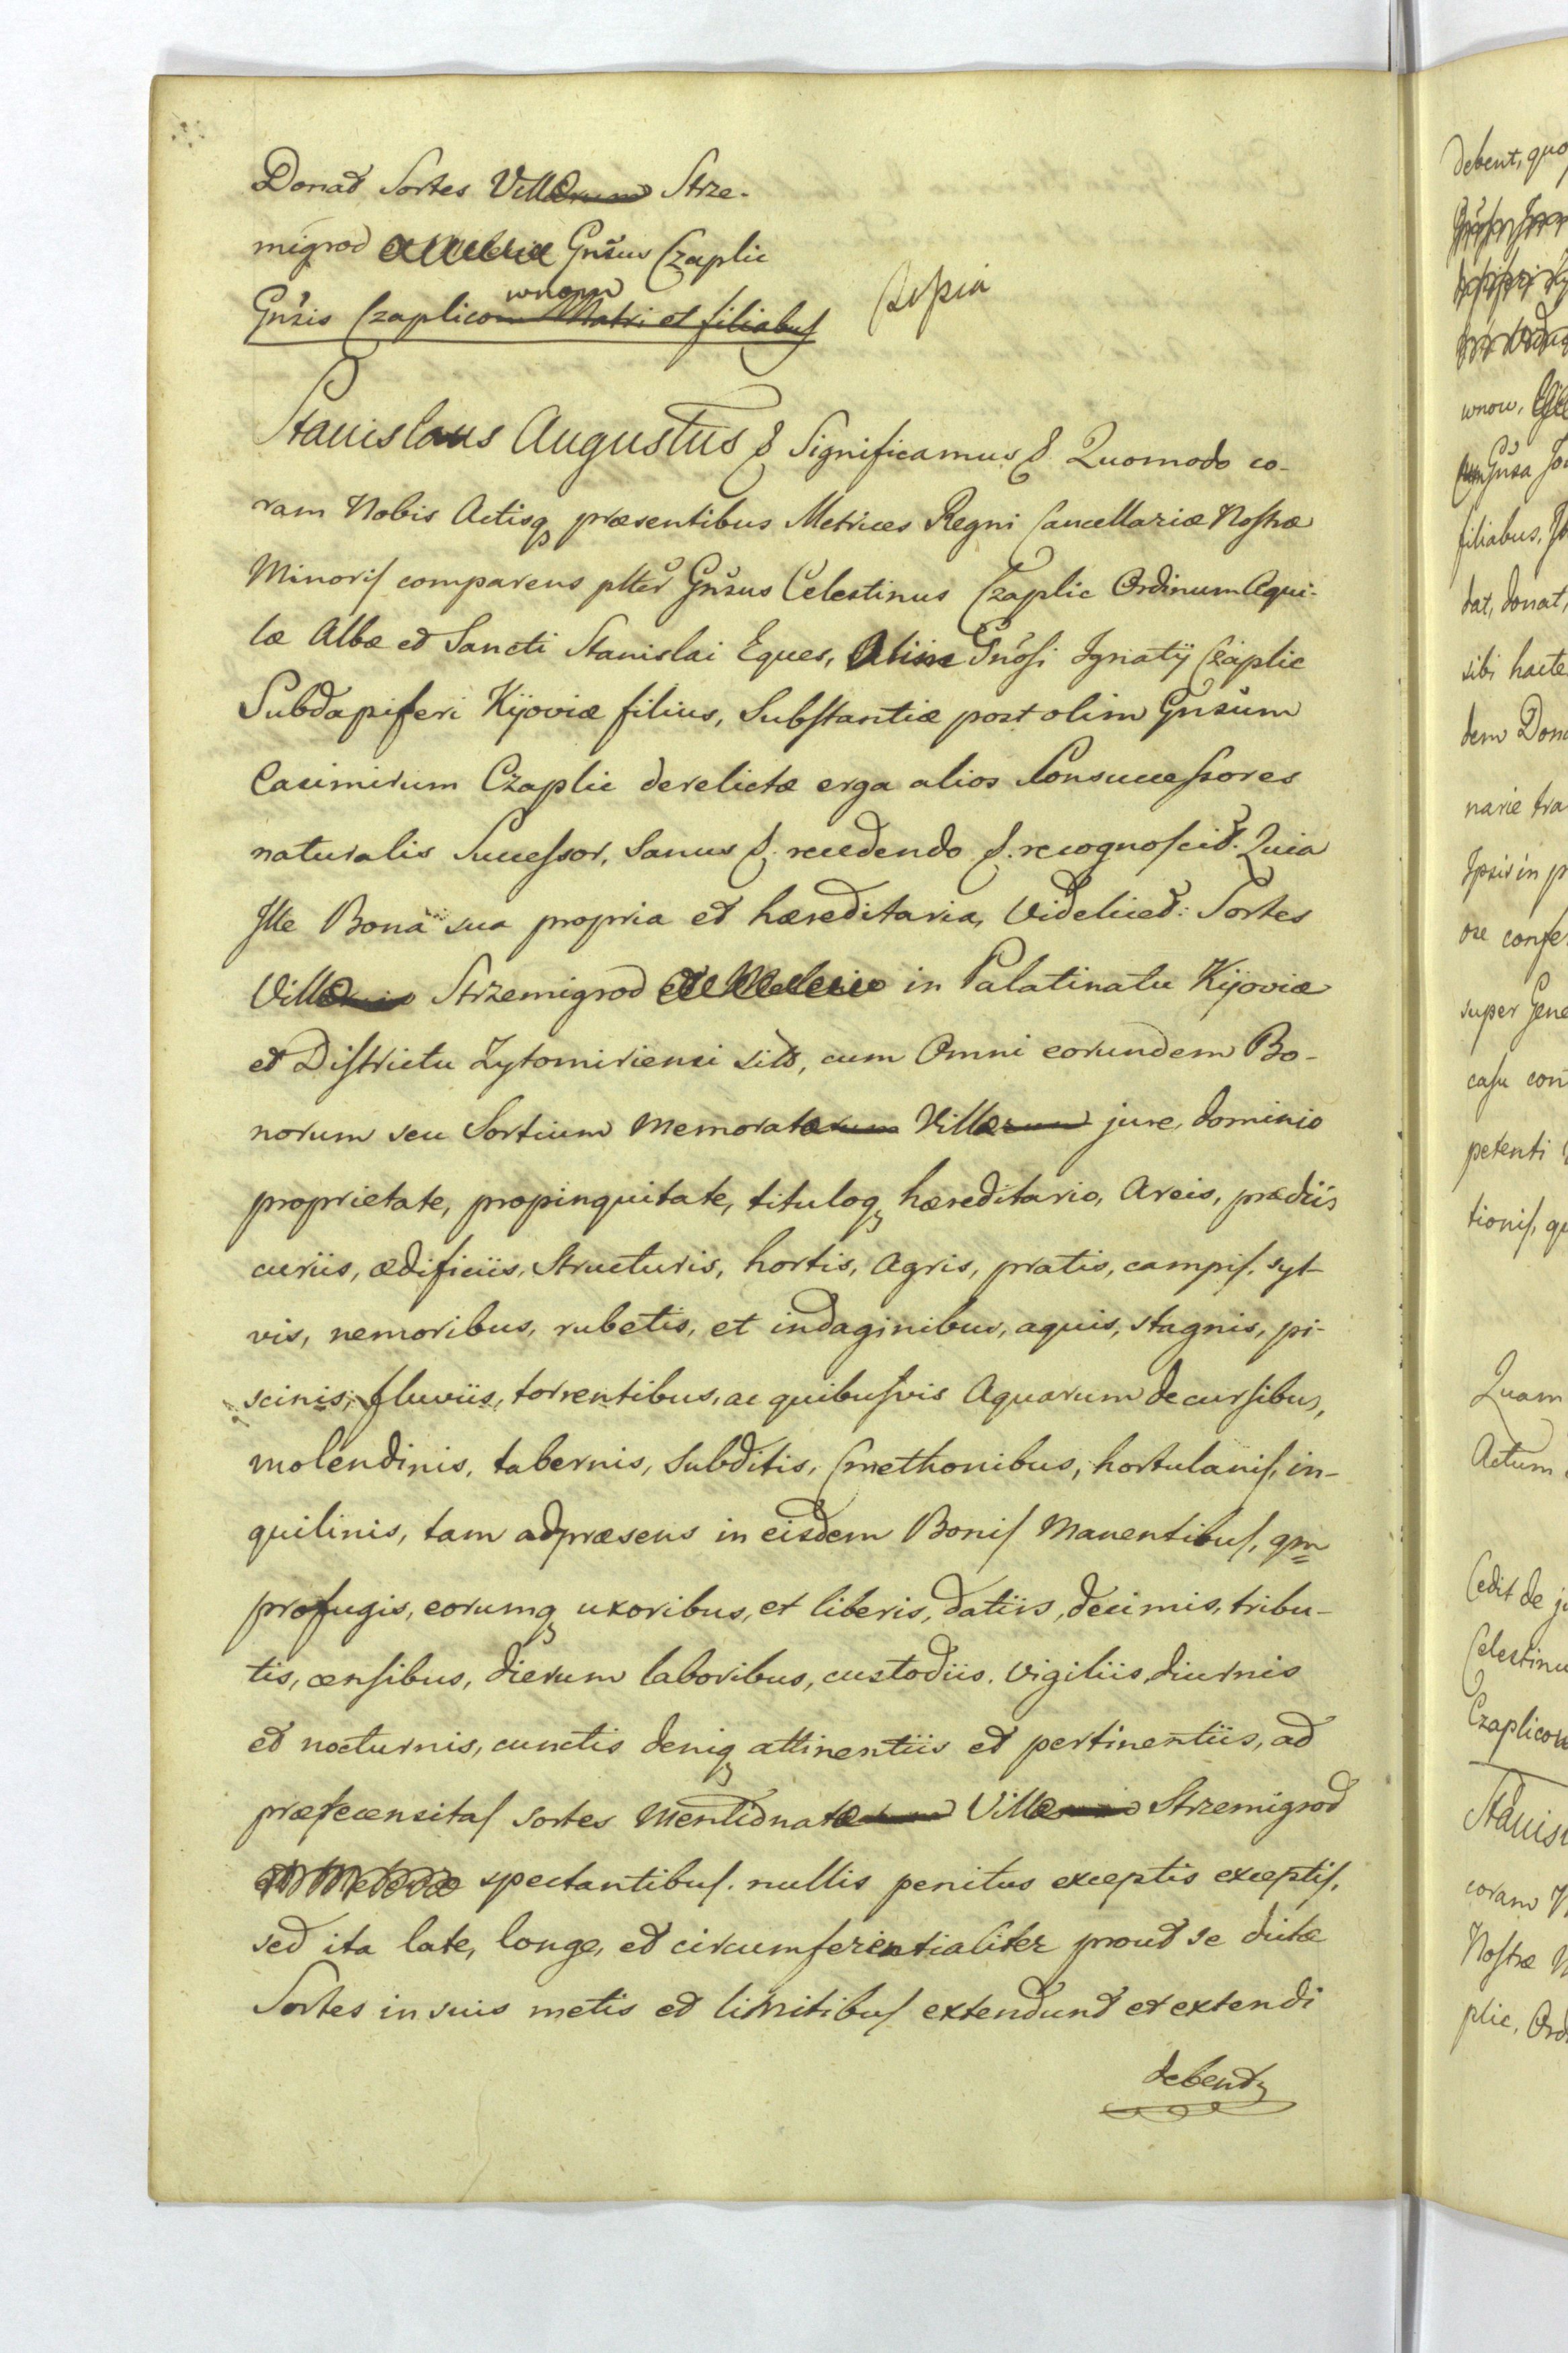 Donat Sortes Villæ Strze-
migrod Gnsus Czaplic
wnom
Gnsis Czaplico Matri et filiabus
Stanislaus Augustus & Significamus &. Quomodo co-
ram Nobis Actisq præsentibus Metrices Regni Cancellariæ Nostræ
Minoris comparens plter Gnsus Celestinus Czaplic Ordinum Aqui-
læ Albæ et Sancti Stanislai Eques, Olim Gnosi Ignatij Czaplic
Subdapiferi Kijoviæ filius, Substantiæ post olim Gnsum
Casimirum Czaplic derelictæ erga alios Consuccessores
naturalis Successor, Sanus &. recedendo &. recognoscit. Quia
Ille Bona sua propria et hæreditaria, Videlicet: Sortes
Villæ Strzemigrod in Palatinatu Kijoviæ
et Districtu Zytomiriensi sits, cum Omni eorundem Bo-
norum seu Sortium Memoratæ Villæ jure, dominio
proprietate, propinquitate, tituloq hæreditario, Areis, prædiis
curiis, ædificiis, Structuris, hortis, Agris, pratis, campis, syl-
vis, nemoribus, rubetis, et indaginibus, aquis, stagnis, pi-
scinis, fluviis, torrentibus, ac quibusvis Aquarum decursibus,
molendinis, tabernis, Subditis, Cmethonibus, hortulanis, in-
quilinis, tam adpræsens in eisdem Bonis Manentibus, qm
profugis, eorumq uxoribus, et liberis, datiis, decimis, tribu-
tis, censibus, dierum laboribus, custodiis. Vigiliis diurnis
et nocturnis, cunctis deniq attinentiis et pertinentiis, ad
præfecensitas sortes Mentionatæ Villæ Strzemigrod
spectantibus. nullis penitus exceptis exceptis,
sed ita late, longe, et circumferentialiter prout se dictæ
Sortes in suis metis et limitibus extendunt et extendi
debent,
debent,
wnow,
Gnsa
filiabus,
dat, donat,
sibi
dem
narie tra
Ipsis in
ore confe
super
casu con
petenti
tionis,
Quam
Actum
Cedit de
Celestinu
Czaplicow
Stanis
coram
Nostræ
plic, Ord